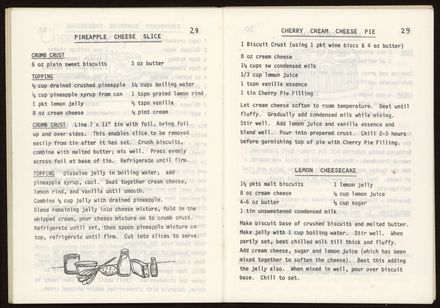 28
PINEAPPLE CHEESE SLICE
CRUMB CRUST
6 oz plain sweet biscuits 3 oz butter
TOPPING
½ cup drained crushed pineapple 1¼ cups boiling water
½ cup pineapple syrup from can 1 tspn grated lemon rind
1 pkt lemon jelly ½ tspn vanilla
8 oz cream cheese ½ pint cream
CRUMB CRUST: Line 7 x 11" tin with foil, bring foil
up and over sides. This enables slice to be removed
easily from tin after it has set. Crush biscuits,
combine with melted butter; mix well. Press evenly
across foil at base of tin. Refrigerate until firm.
TOPPING Dissolve jelly in boiling water; add
pineapple syrup, cool. Beat together cream cheese,
lemon rind, and vanilla until smooth.
Combine ½ cup jelly with drained pineapple.
Blend remaining jelly into cheese mixture, fold in the
whipped cream, pour cheese mixture on to crumb crust.
Refrigerate until set, then spoon pineapple mixture on
top, refrigerate until firm. Cut into slices to serve.
CHERRY CREAM CHEESE PIE 29
1 Biscuit Crust (using 1 pkt wine biscs & 4 oz butter)
8 oz cream cheese
1¼ cups sw condensed milk
1/3 cup lemon juice
1 tspn vanilla essence
1 tin Cherry Pie Filling
Let cream cheese soften to room temperature. Beat until
fluffy. Gradually add condensed milk while mixing.
Stir well. Add lemon juice and vanilla essence and
blend well. Pour into prepared crust. Chill 2-3 hours
before garnishing top of pie with Cherry Pie Filling.
LEMON CHEESECAKE
1½ pkts malt biscuits 1 lemon jelly
8 oz cream cheese ½ cup lemon juice
4-6 oz butter ½ cup sugar
1 tin unsweetened condensed milk
Make biscuit base of crushed biscuits and melted butter.
Make jelly with 1 cup boiling water. Stir well. When
partly set, beat chilled milk till thick and fluffy.
Add cream cheese, sugar and lemon juice (which has been
mixed together to soften the cheese). Beat this adding
the jelly also. When mixed in well, pour over biscuit
base. Chill to set.